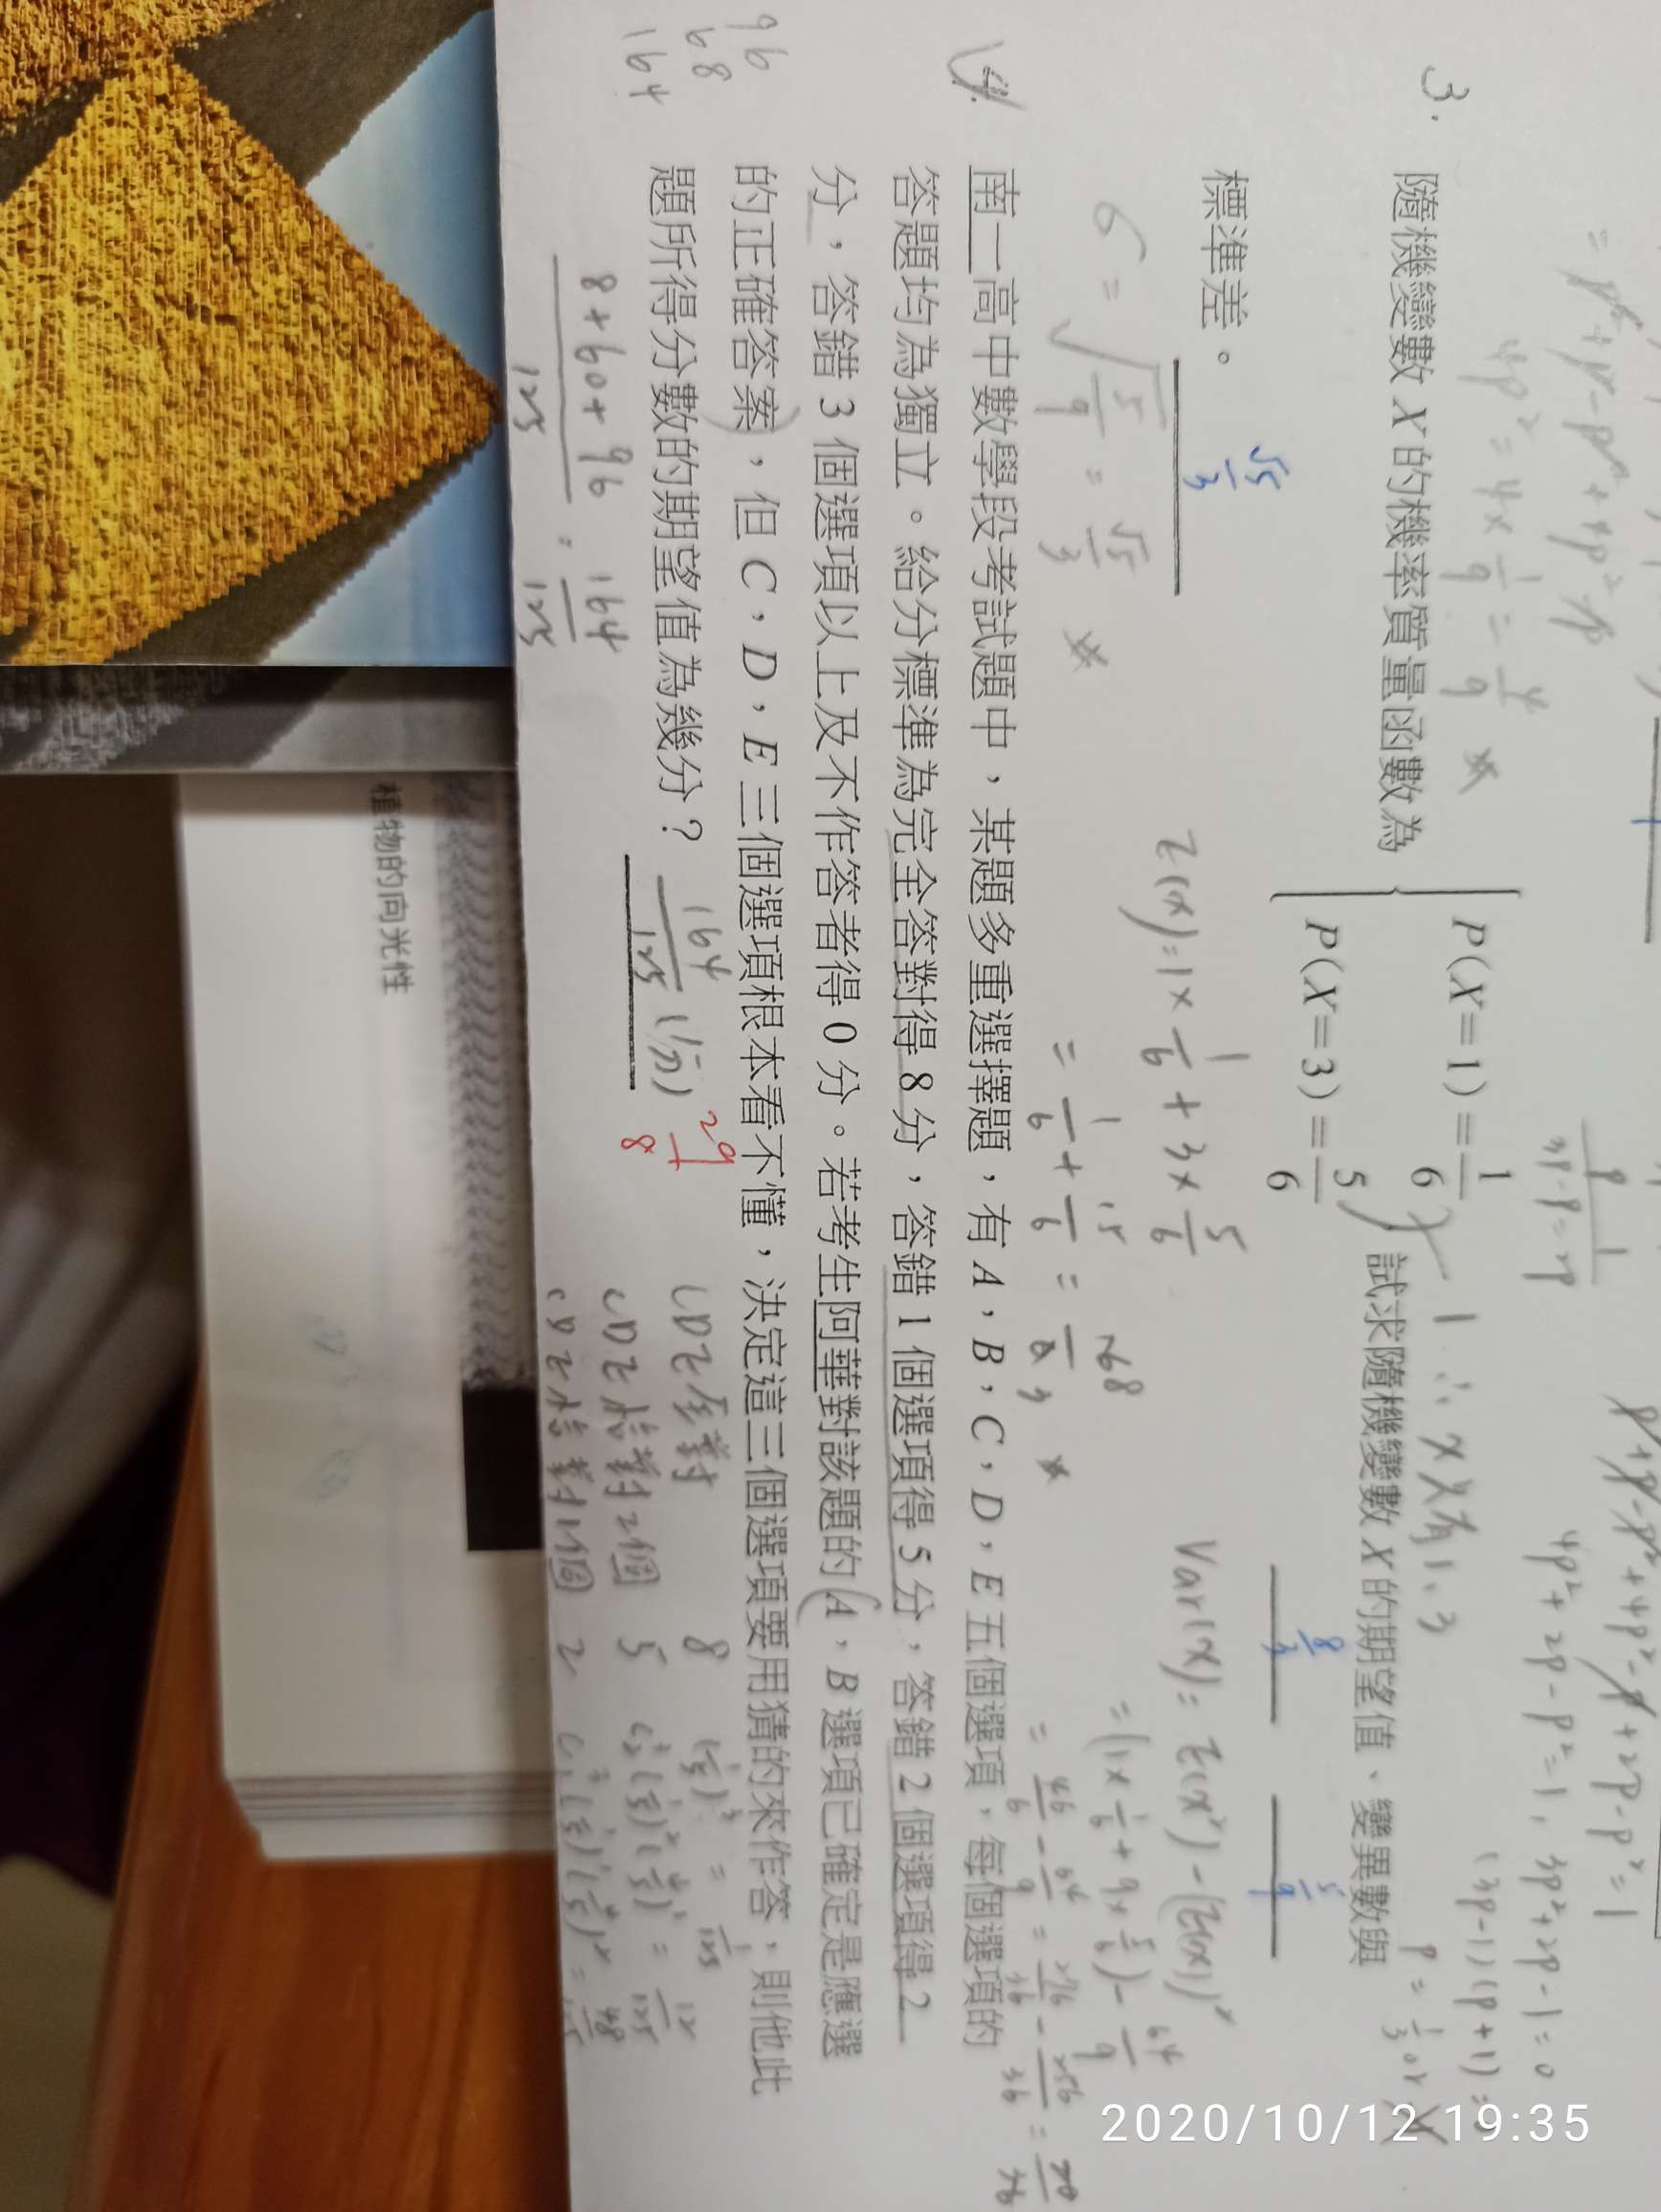 = p² + p - p² + 4p² - p
4p² = 4 × 1/9 = 4/9 ※
p + p - p² + 4p² - p + 2p - p² = 1
4p² + 2p - p² = 1, 3p² + 2p - 1 = 0
(3p-1)(p+1) = 0
p = 1/3 or
3p - p = 2p
3. 隨機變數 X 的機率質量函數為 { P(X=1)=1/6 試求隨機變數 X 的期望值、變異數與
P(X=3)=5/6
1 ∴ x 只有 1、3
8/3
5/9
標準差。 √5/3
E(x) = 1 × 1/6 + 3 × 5/6
= 1/6 + 15/6 =
Var(x) = E(x²) - (E(x))²
= (1 × 1/6 + 9 × 5/6) - 64/9
= 46/6 - 64/9 = 276/36 - 256/36 = 20/36
σ = √5/9 = √5/3 ※
4. 南一高中數學段考試題中，某題多重選擇題，有 A，B，C，D，E 五個選項，每個選項的
答題均為獨立。給分標準為完全答對得 8 分，答錯 1 個選項得 5 分，答錯 2 個選項得 2
分，答錯 3 個選項以上及不作答者得 0 分。若考生阿華對該題的 A，B 選項已確定是應選
的正確答案，但 C，D，E 三個選項根本看不懂，決定這三個選項要用猜的來作答，則他此
題所得分數的期望值為幾分？ 164/125 (分) 29/8
96
68
164
8+60+96/125 = 164/125
CDE 全對 8 (1/5)³ = 1/125
CDE 猜對2個 5 (1/5)²(4/5)¹ = 12/125
CDE 猜對1個 2 (1/5)¹(4/5)² = 48/125
植物的向光性
2020/10/12 19:35